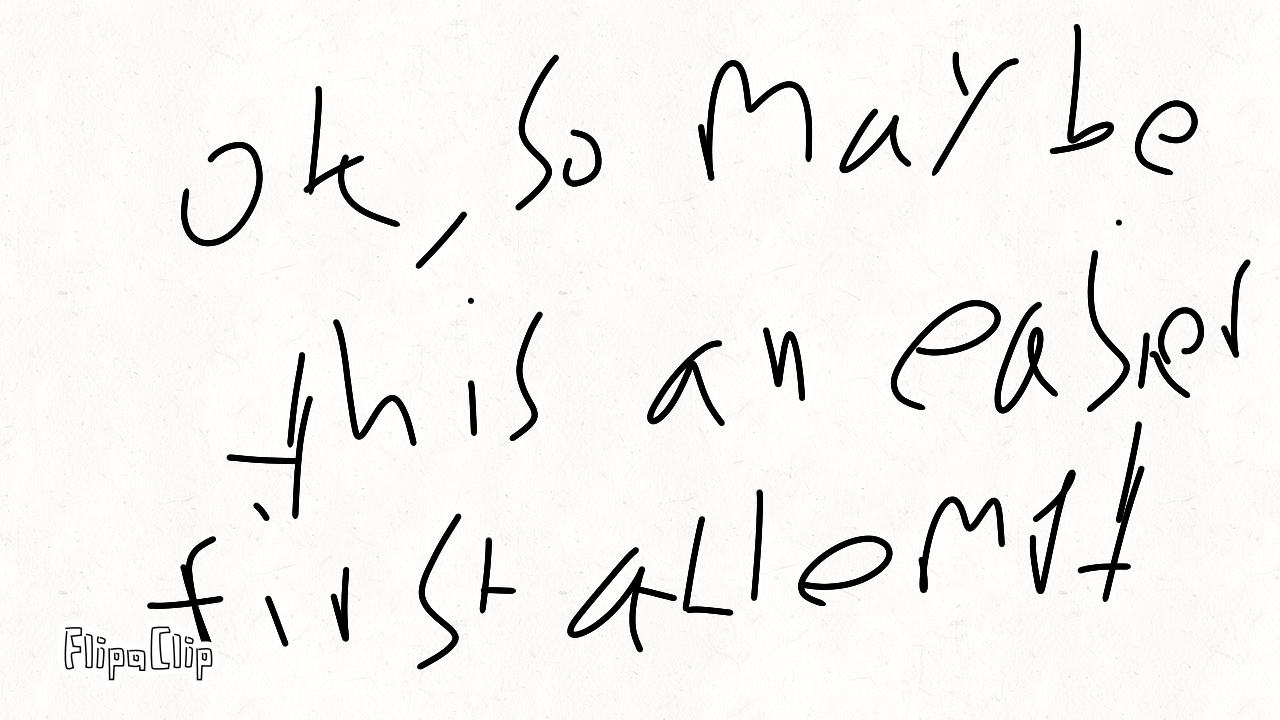 ok, so maybe
this an easier
first attempt
FlipaClip